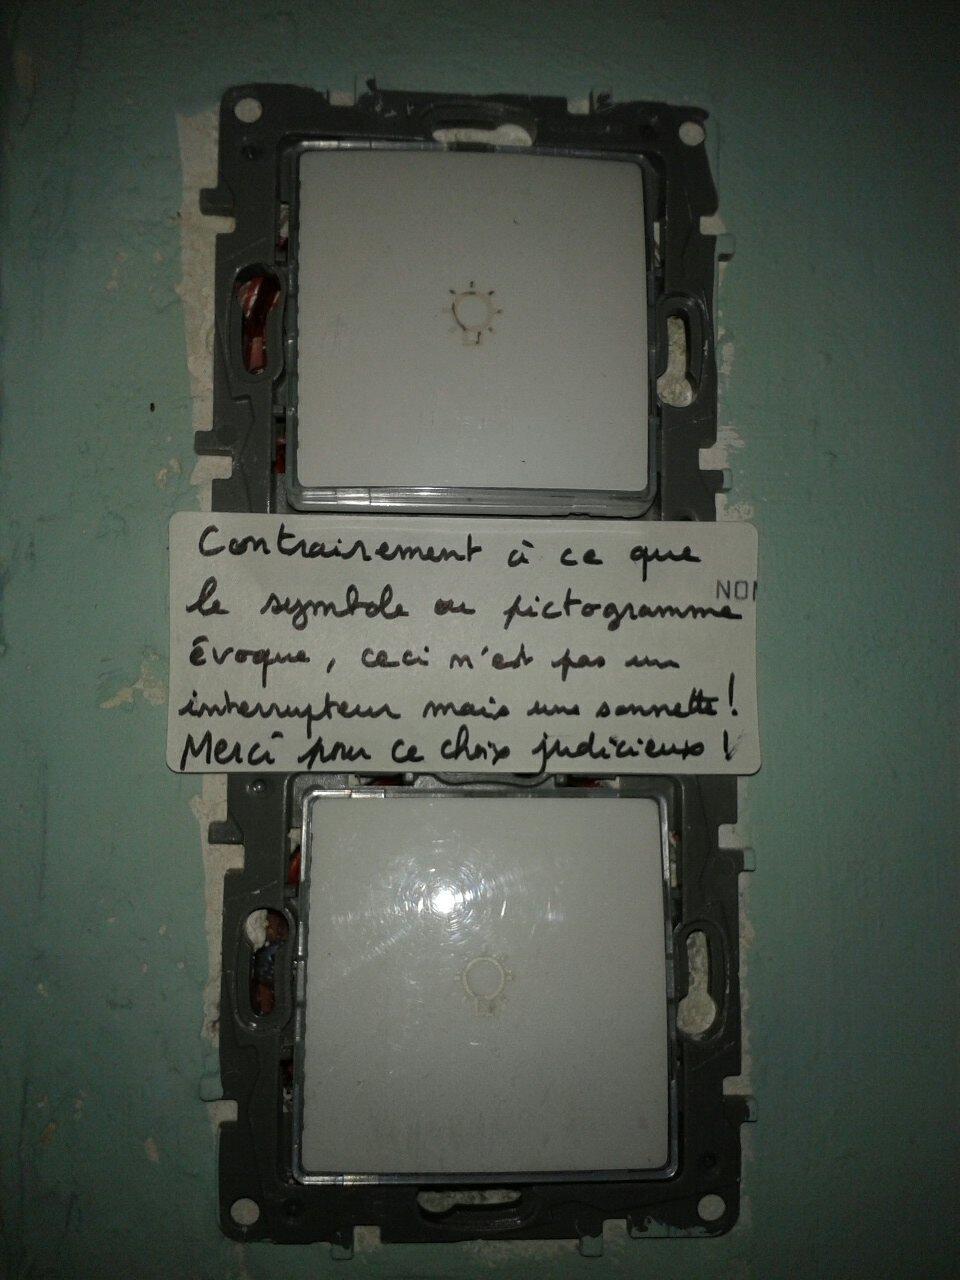 Contrairement à ce que
NOI
le symbole ou pictogramme
évoque, ceci n'est pas un
interrupteur mais une sonnette!
Merci pour ce choix judicieux !